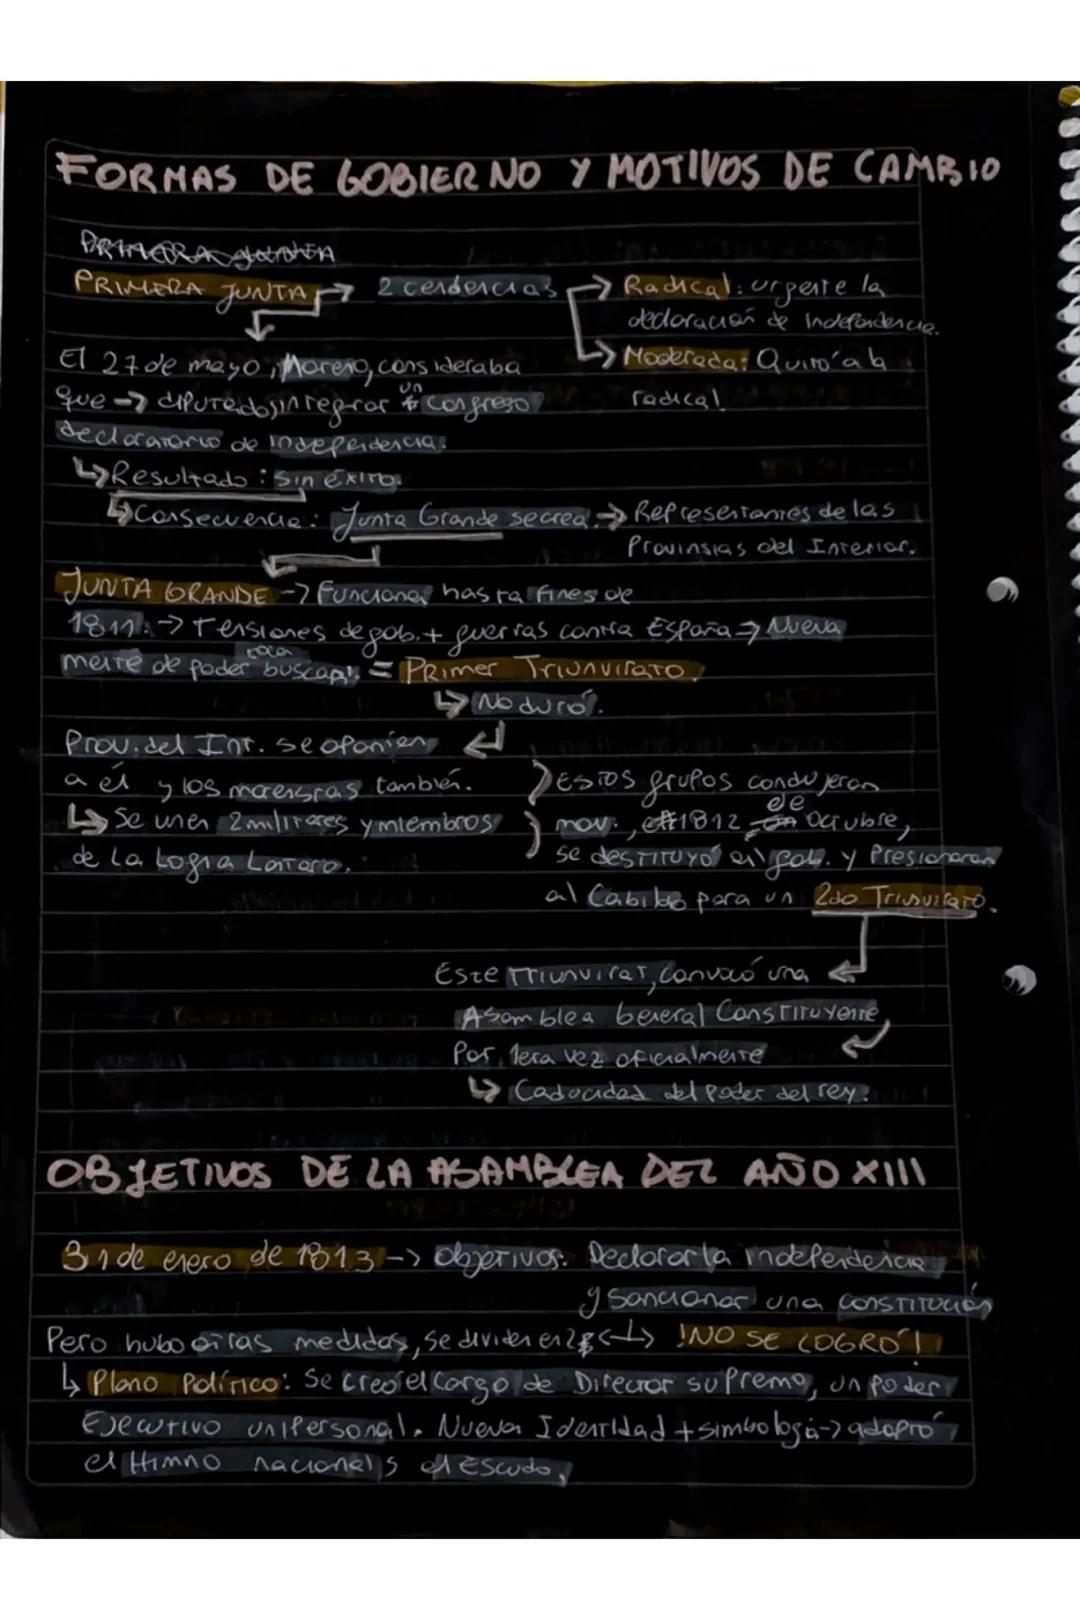 FORMAS DE GOBIERNO Y MOTIVOS DE CAMBIO
PRIMERA JUNTA
PRIMERA JUNTA → 2 tendencias → Radical: urgente la
declaración de Independencia.
→ Moderada: Quitó a la
radical.
El 27 de mayo, Moreno, consideraba
que → diputados, integrar un congreso
declaratorio de independencia.
↳ Resultado: sin éxito.
↳ Consecuencia: Junta Grande se crea. → Representantes de las
Provinsias del Interior.
JUNTA GRANDE → Funciona hasta fines de
1811. → Tensiones de gob. + guerras contra España → Nueva
mente de poder buscan = PRIMER TRIUNVIRATO.
↳ No duró.
Prov. del Int. se oponían
a él y los morenistas también.
↳ Se unen 2 militares y miembros
de la Logia Lautaro.
Estos grupos condujeron
mov., 1812 de Octubre,
se destituyó al gob. y Presionaron
al Cabildo para un 2do Triunvirato.
Este triunvirat, convocó una
Asamblea General Constituyente
Por 1era vez oficialmente
↳ Caducidad del poder del rey.
OBJETIVOS DE LA ASAMBLEA DEL AÑO XIII
31 de enero de 1813 → objetivos: Declarar la independencia
y sancionar una constitución
Pero hubo otras medidas, se dividen en 2 ↳ ¡NO SE LOGRÓ!
↳ Plano Político: Se creó el cargo de Director supremo, un poder
Ejecutivo unipersonal. Nueva Identidad + simbología → adoptó
el Himno nacional y el Escudo,